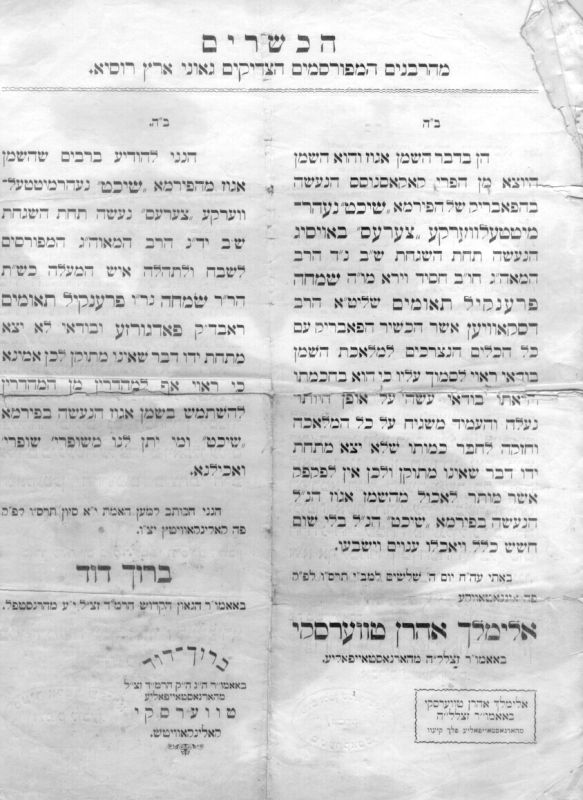 הכשרים
מהרבנים המפורסמים הצדיקים גאוני ארץ רוסיא.
ב״ה
הן בדבר השמן אגוז והוא השמן
היוצא מן הפרי קאקאסנוסס הנעשה
בהפאבריק של הפירמא „שיכט״ נעהר־
מיטטעלווערקע „צערעס״ באויסיג
הנעשה תחת השגחת ש״ב נ״ד הרב
המאה״ג חו״ב חסיד וירא מו״ה שמחה
פרענקיל תאומים שליט״א הרב
דסקאוויען אשר הכשיר הפאבריק עם
כל הכלים הנצרכים למלאכת השמן
בודאי ראוי לסמוך עליו כי הוא בחכמתו
ויראתו בודאי עשה על אופן היותר
נעלה והעמיד משגיח על כל המלאכה
וחזקה לחבר כמותו שלא יצא מתחת
ידו דבר שאינו מתוקן ולכן אין לפקפק
אשר מותר לאכול מהשמן אגוז הנ״ל
הנעשה בפירמא „שיכט״ הנ״ל בלי שום
חשש כלל ויאכלו ענוים וישבעו.
באתי עה״ח יום ה׳ שלישים למב״י תרס״ו לפ״ק
פה
אלימלך אהרן טווערסקי
באאמו״ר זצלל״ה מהארנאסטאייפאליע.
אלימלך אהרן טווערסקי
באאמו״ר זצללה״ה
מהארנאסטאייפאליע פלך קיעוו
ב״ה.
הנני להודיע ברבים שהשמן
אגוז מהפירמא „שיכט״ נעהרמיטטעל־
ווערקע „צערעס״ נעשה תחת השגחת
ש״ב יד״נ הרב המאוה״ג המפורסים
לשבח ולתהלה איש המעלה כש״ת
הר״ר שמחה נר״ו פרענקיל תאומים
ראבד״ק פאדגורזע ובודאי לא יצא
מתחת ידו דבר שאינו מתוקן לכן אמינא
כי ראוי אף למהדרין מן המהדרין
להשתמש בשמן אגוז הנעשה בפירמא
„שיכט״ ומי יתן לנו משופרי׳ שופרי׳
ואכילנא.
הנני הכותב למען האמת י״א סיון תרס״ו לפ״ק
פה קאלינקאוויטץ יצ״ו.
ברוך דוד
באאמו״ר הגאון הקדוש הרמ״ד זצ״ל י״ע מהרנסטפל.
ברוך־דוד
באאמו״ר ה״ג ה״ק הרמ״ד זצ״ל
מהארנאסטאייפאליע
טווערסקי
קאלינקאוויטש.